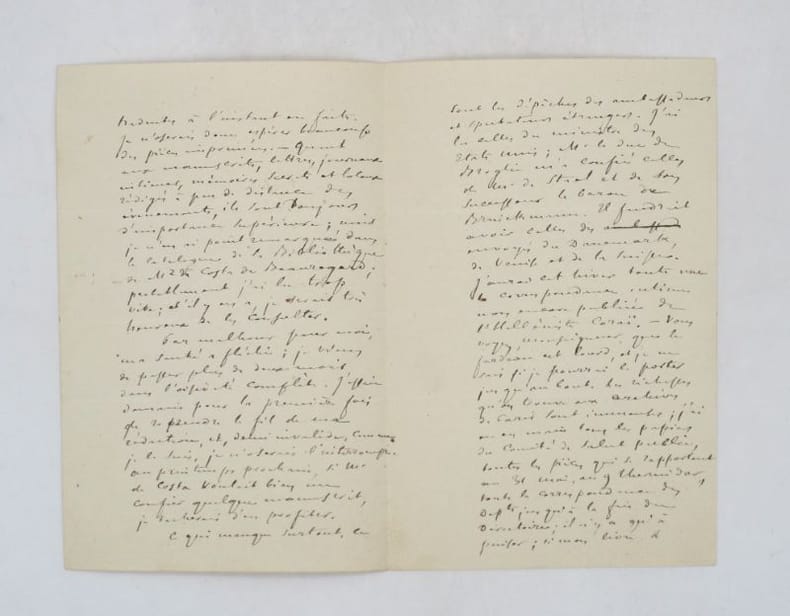 traduites à l'instant en faits.
Je n'oserais donc espérer beaucoup
des pièces imprimées. — Quant
aux manuscrits, lettres, journaux
intimes, mémoires secrets et locaux
rédigés à peu de distance des
événements, ils sont toujours
d'importance supérieure; mais
je n'en ai point remarqué dans
le catalogue de la Bibliothèque
de Mr de Costa de Beauregard;
probablement j'ai lu trop
vite; s'il y en a, je serais très
heureux de les consulter.
Par malheur pour moi,
ma santé a fléchi; je viens
de passer plus de deux mois
dans l'oisiveté complète. J'essaie
demain pour la première fois
de reprendre le fil de ma
rédaction, et, demi invalide, comme
je le suis, je n'oserais l'interrompre.
au printemps prochain, si Mr
de Costa voulait bien me
confier quelque manuscrit,
je tacherais d'en profiter.
Ce qui manque surtout, ce
sont les dépêches des ambassadeurs
et spectateurs étrangers. J'ai
lu celles du ministre des
Etats Unis; Mr le duc de
Broglie m'a confié celles
de Mr de Stael et de son
successeur le baron de
Brinckmann. Il faudrait
avoir celles des
envoyés du Danemark,
de Venise et de la Suisse.
J'aurai cet hiver toute une
correspondance intime
non encore publiée de
l'helléniste Coraï. — Vous
voyez, Monseigneur, que le
fardeau est lourd, et je ne
sais si je pourrai le porter
jusqu'au bout. Les richesses
qu'on trouve aux archives
de Paris sont immenses; j'ai
eu en main tous les papiers
du Comité de Salut public,
toutes les pièces qui se rapportent
au 31 mai, au 9 thermidor,
toute la correspondance des
Depts jusqu'à la fin du
Directoire; il n'y a qu'à
puiser; si mon livre a